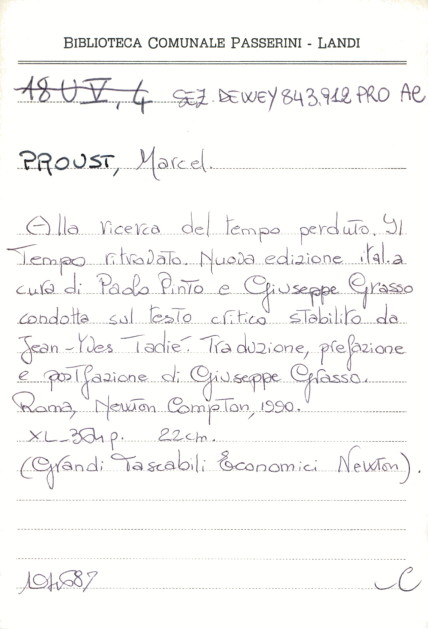 BIBLIOTECA COMUNALE PASSERINI - LANDI
18 U V, 4 SEZ. DEWEY 843.912 PRO AR
PROUST, Marcel.
Alla ricerca del tempo perduto. Il
Tempo ritrovato. Nuova edizione ital. a
cura di Paolo Pinto e Giuseppe Grasso
condotta sul testo critico stabilito da
Jean-Yves Tadié. Traduzione, prefazione
e postfazione di Giuseppe Grasso.
Roma, Newton Compton, 1990.
XL-364 p. 22 cm.
(Grandi Tascabili Economici Newton).
104687